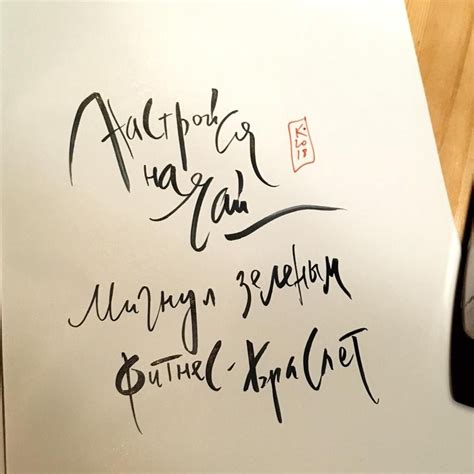 Настройся
на чай
К.
2018
Мигнул зеленым
фитнес-браслет